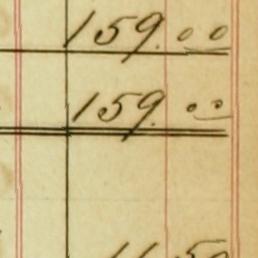 159.00
159.00